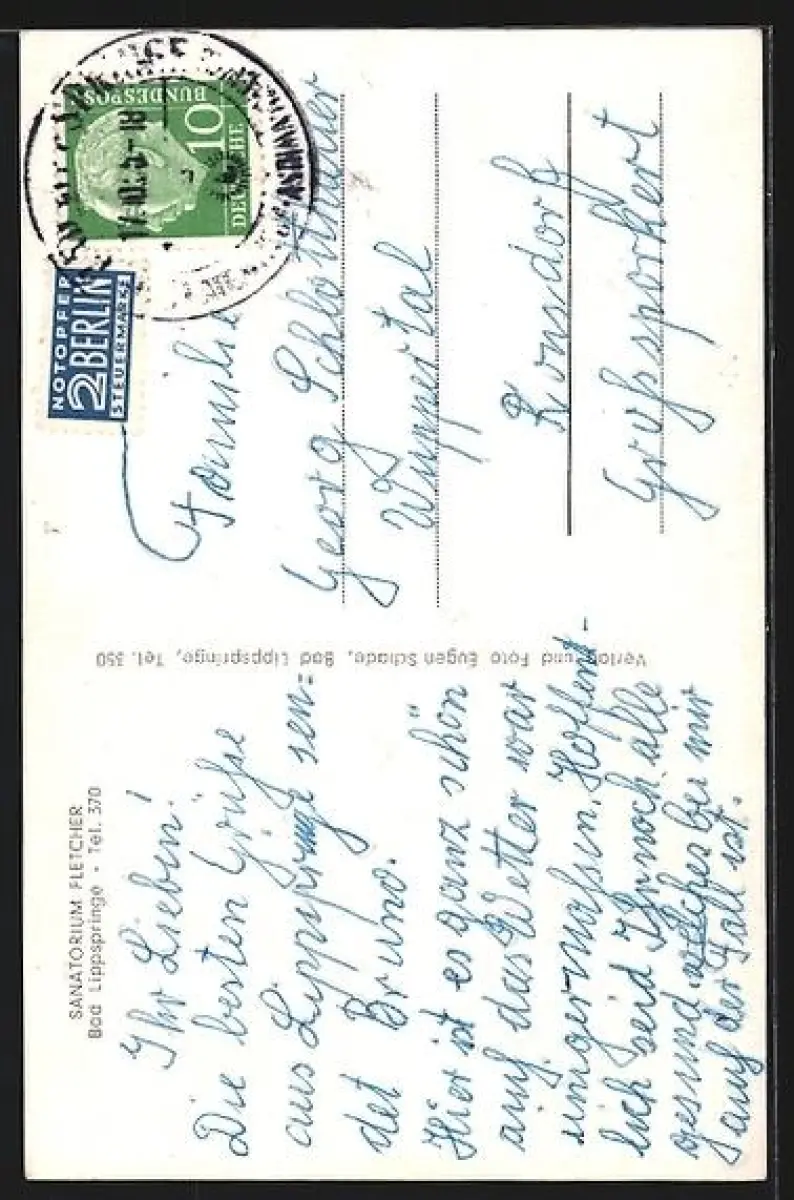 SANATORIUM FLETCHER
Bad Lippspringe • Tel. 370
Ihr Lieben!
Die besten Grüße
aus Lippspringe sen=
det Bruno.
Hier ist es ganz schön
auf das Wetter war
einigermaßen. Hoffent-
lich seid Ihr noch alle
gesund welches bei mir
auch der Fall ist.
Verlag und Foto Eugen Schade, Bad Lippspringe, Tel. 350
DEUTSCHE
BUNDESPOST
10
NOTOPFER
2 BERLIN
STEUERMARKE
Familie
Georg
Wuppertal
Ronsdorf
Großsporkert